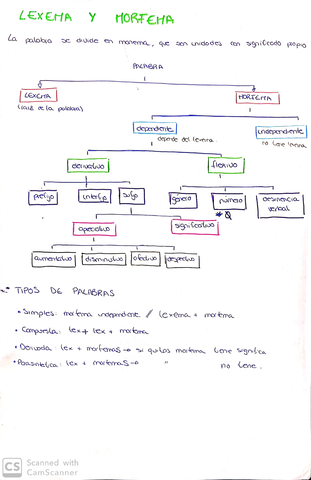 LEXEMA Y MORFEMA
La palabra se divide en monema, que son unidades con significado propio
PALABRA
LEXEMA
(raíz de la palabra)
MORFEMA
dependiente
depende del lexema
independiente
no tiene lexema
derivativo
flexivo
prefijo
interfijo
sufijo
género
número
desinencia verbal
* Ø
apreciativo
significativo
aumentativo
diminutivo
afectivo
despectivo
* TIPOS DE PALABRAS
• Simples: morfema independiente // Lexema + morfema
• Compuesta: lex + lex + morfema
• Derivada: lex + morfemas → si quitas morfema tiene significa
• Parasintética: lex + morfemas → " no tiene.
CS Scanned with
CamScanner